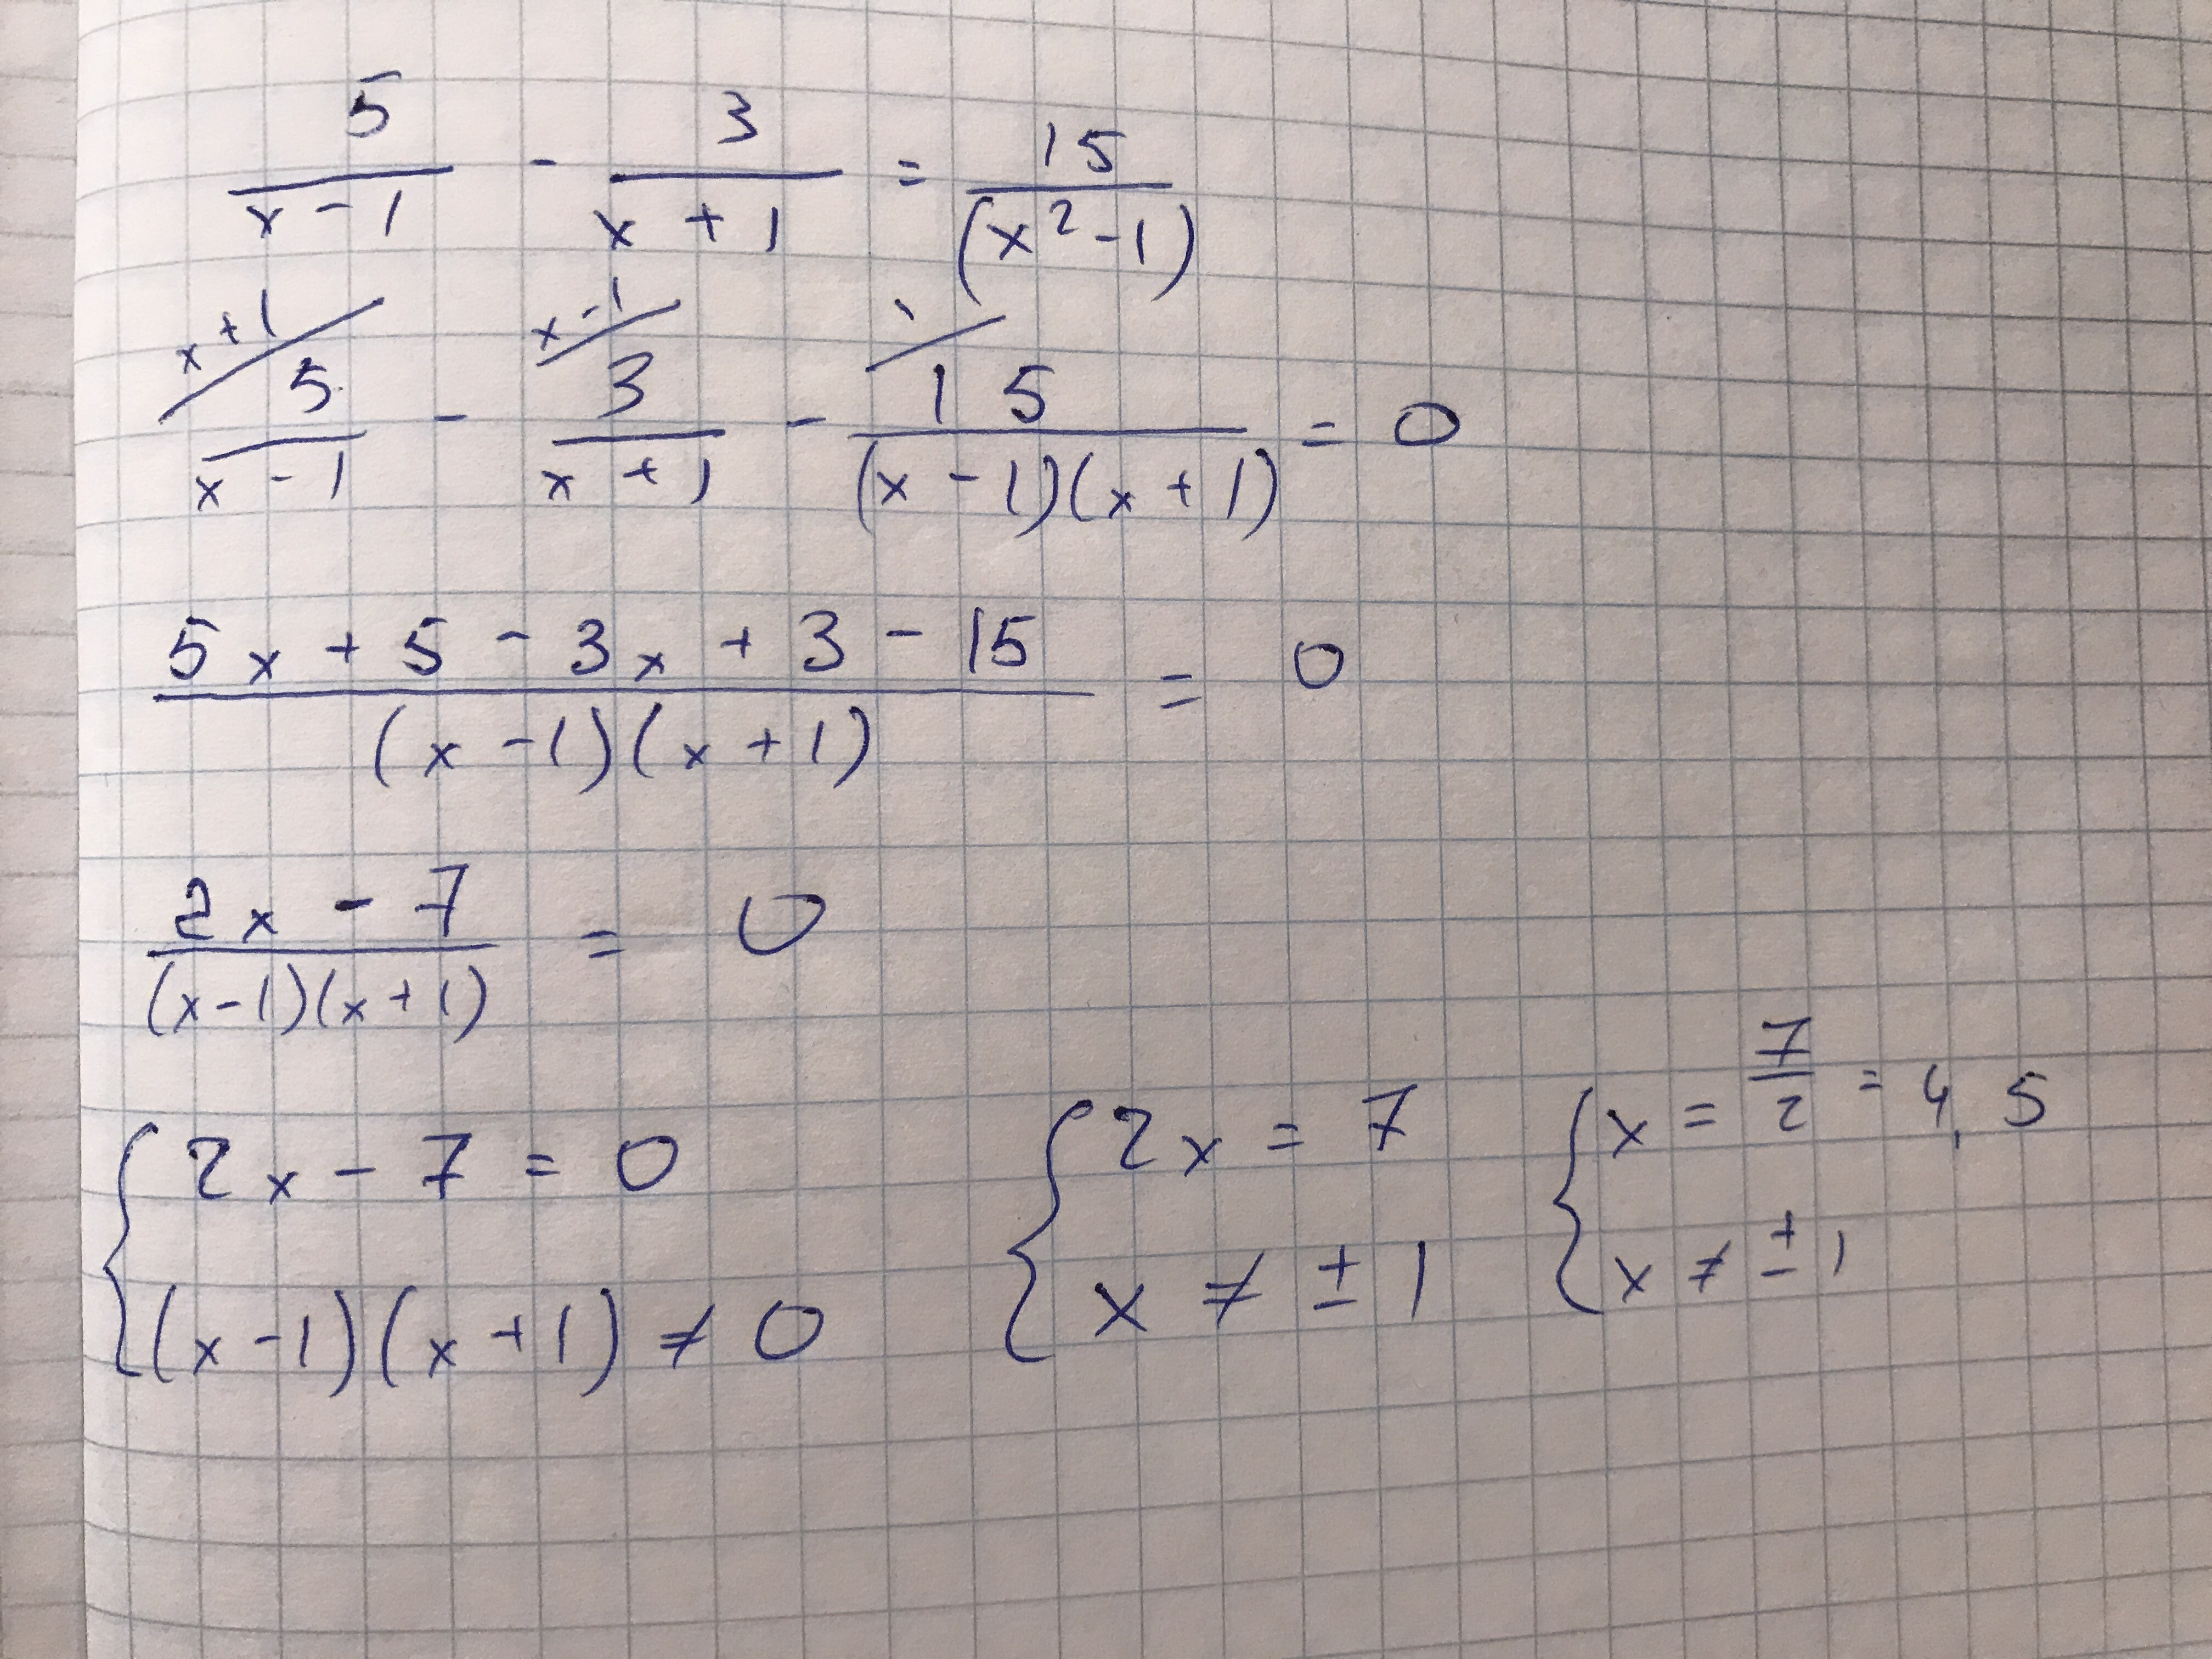 5/(x - 1) - 3/(x + 1) = 15/(x² - 1)
x + 1/ 5/(x - 1) - x - 1/ 3/(x + 1) - 1/ 15/((x - 1)(x + 1)) = 0
(5x + 5 - 3x + 3 - 15)/((x - 1)(x + 1)) = 0
(2x - 7)/((x - 1)(x + 1)) = 0
{ 2x - 7 = 0 { 2x = 7 { x = 7/2 = 4,5
(x - 1)(x + 1) ≠ 0 x ≠ ± 1 x ≠ ± 1